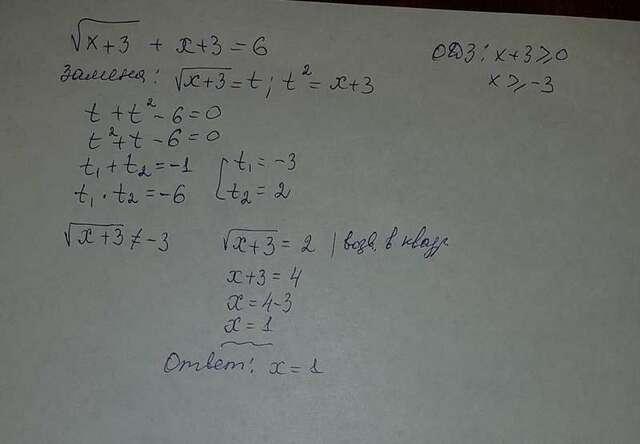 √x+3 + x+3 = 6
ОДЗ: x+3 ⩾ 0
x ⩾ -3
Замена: √x+3 = t; t² = x+3
t + t² - 6 = 0
t² + t - 6 = 0
t₁ + t₂ = -1
t₁ · t₂ = -6
[ t₁ = -3
t₂ = 2
√x+3 ≠ -3
√x+3 = 2 | возв. в квадр
x+3 = 4
x = 4-3
x = 1
Ответ: x = 1